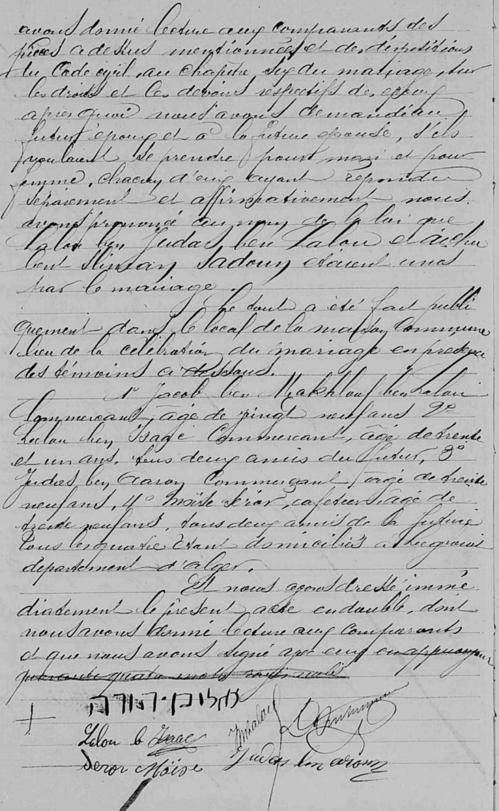 avons donné lecture aux comparants des
pièces a dessus mentionnées et des dispositions
du Code civil, au chapitre six du mariage, sur
les droits et les devoirs respectifs des époux
après quoi nous avons demandé au
futur époux et à la future épouse, s'ils
voulaient se prendre pour mari et pour
femme, chacun d'eux ayant répondu
séparément et affirmativement nous
avons prononcé au nom de la loi que
Lalou ben Judas ben Lalou et
bent Sadoun étaient unis
par le mariage.
Le tout a été fait publi
quement dans le local de la maison Commune
lieu de la célébration du mariage en présence
des témoins ci dessous.
1º Jacob ben Makhlouf ben Lalou
Commerçant, âgé de vingt neuf ans 2º
Lalou ben Isaac Commerçant, âgé de trente
et un ans. tous deux amis du futur, 3º
Judas ben Aaron Commerçant âgé de trente
neuf ans, 4º Moïse Séror, cafetier, âgé de
trente neuf ans, tous deux amis de la future
tous les quatre étant domiciliés à
département d'Alger.
Et nous avons dressé immé
diatement le présent acte en double, dont
nous avons donné lecture aux comparants
et que nous avons signé avec eux
quarante quatre mots rayés nuls
Lalou b Isaac
Seror Moïse Judas ben aron